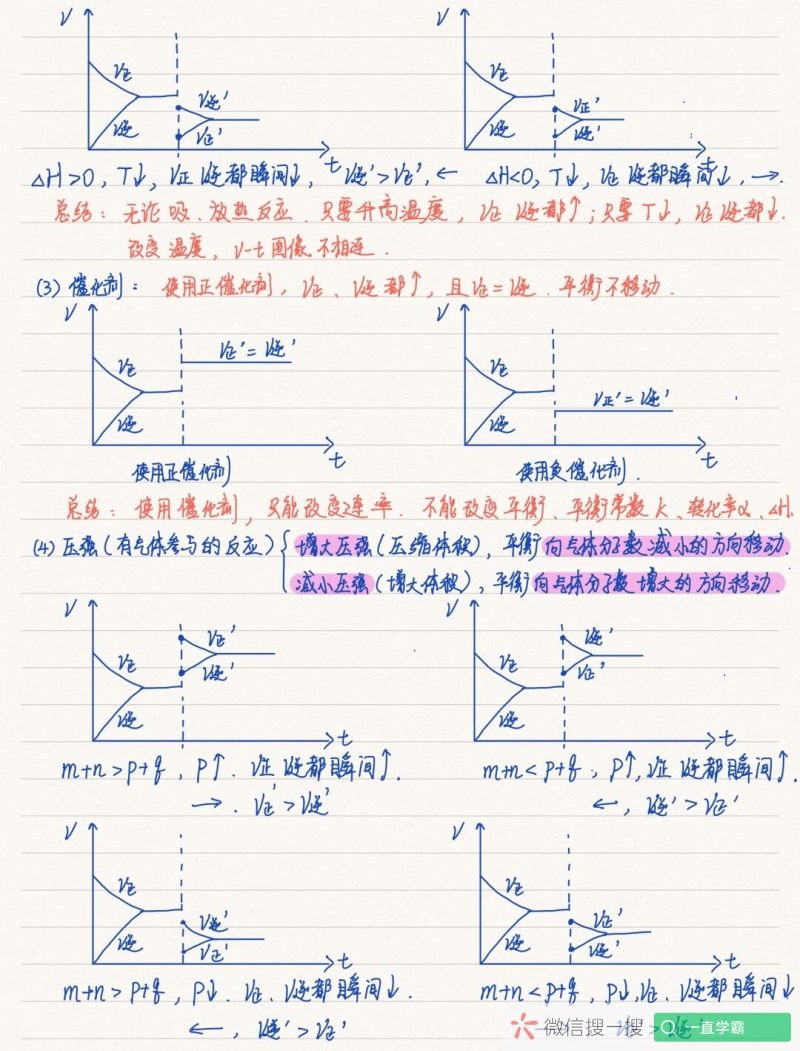 V V
V正 V正
V逆' V正'
V逆 V正' V逆 V逆'
t t
△H>0, T↓, V正 V逆都瞬间↓, V逆'>V正', ← △H<0, T↓, V正 V逆都瞬间↓, →.
总结: 无论吸、放热反应. 只要升高温度, V正 V逆都↑; 只要T↓, V正 V逆都↓.
改变温度, v-t图像不相连.
(3) 催化剂: 使用正催化剂, V正、V逆都↑, 且V正=V逆. 平衡不移动.
V V
V正'=V逆'
V正 V正
V正'=V逆'
V逆 V逆
t t
使用正催化剂 使用负催化剂.
总结: 使用催化剂, 只能改变速率. 不能改变平衡、平衡常数K、转化率α、△H.
(4) 压强(有气体参与的反应) { 增大压强(压缩体积), 平衡向气体分子数减小的方向移动.
减小压强(增大体积), 平衡向气体分子数增大的方向移动.
V V
V正' V逆'
V正 V正
V逆' V正'
V逆 V逆
t t
m+n>p+q, P↑. V正 V逆都瞬间↑. m+n<p+q, P↑, V正 V逆都瞬间↑.
→. V正'>V逆' ←, V逆'>V正'
V V
V正 V正
V逆' V正'
V逆 V正' V逆 V逆'
t t
m+n>p+q, P↓. V正、V逆都瞬间↓. m+n<p+q, P↓, V正、V逆都瞬间↓
←, V逆'>V正'
微信搜一搜 一直学霸